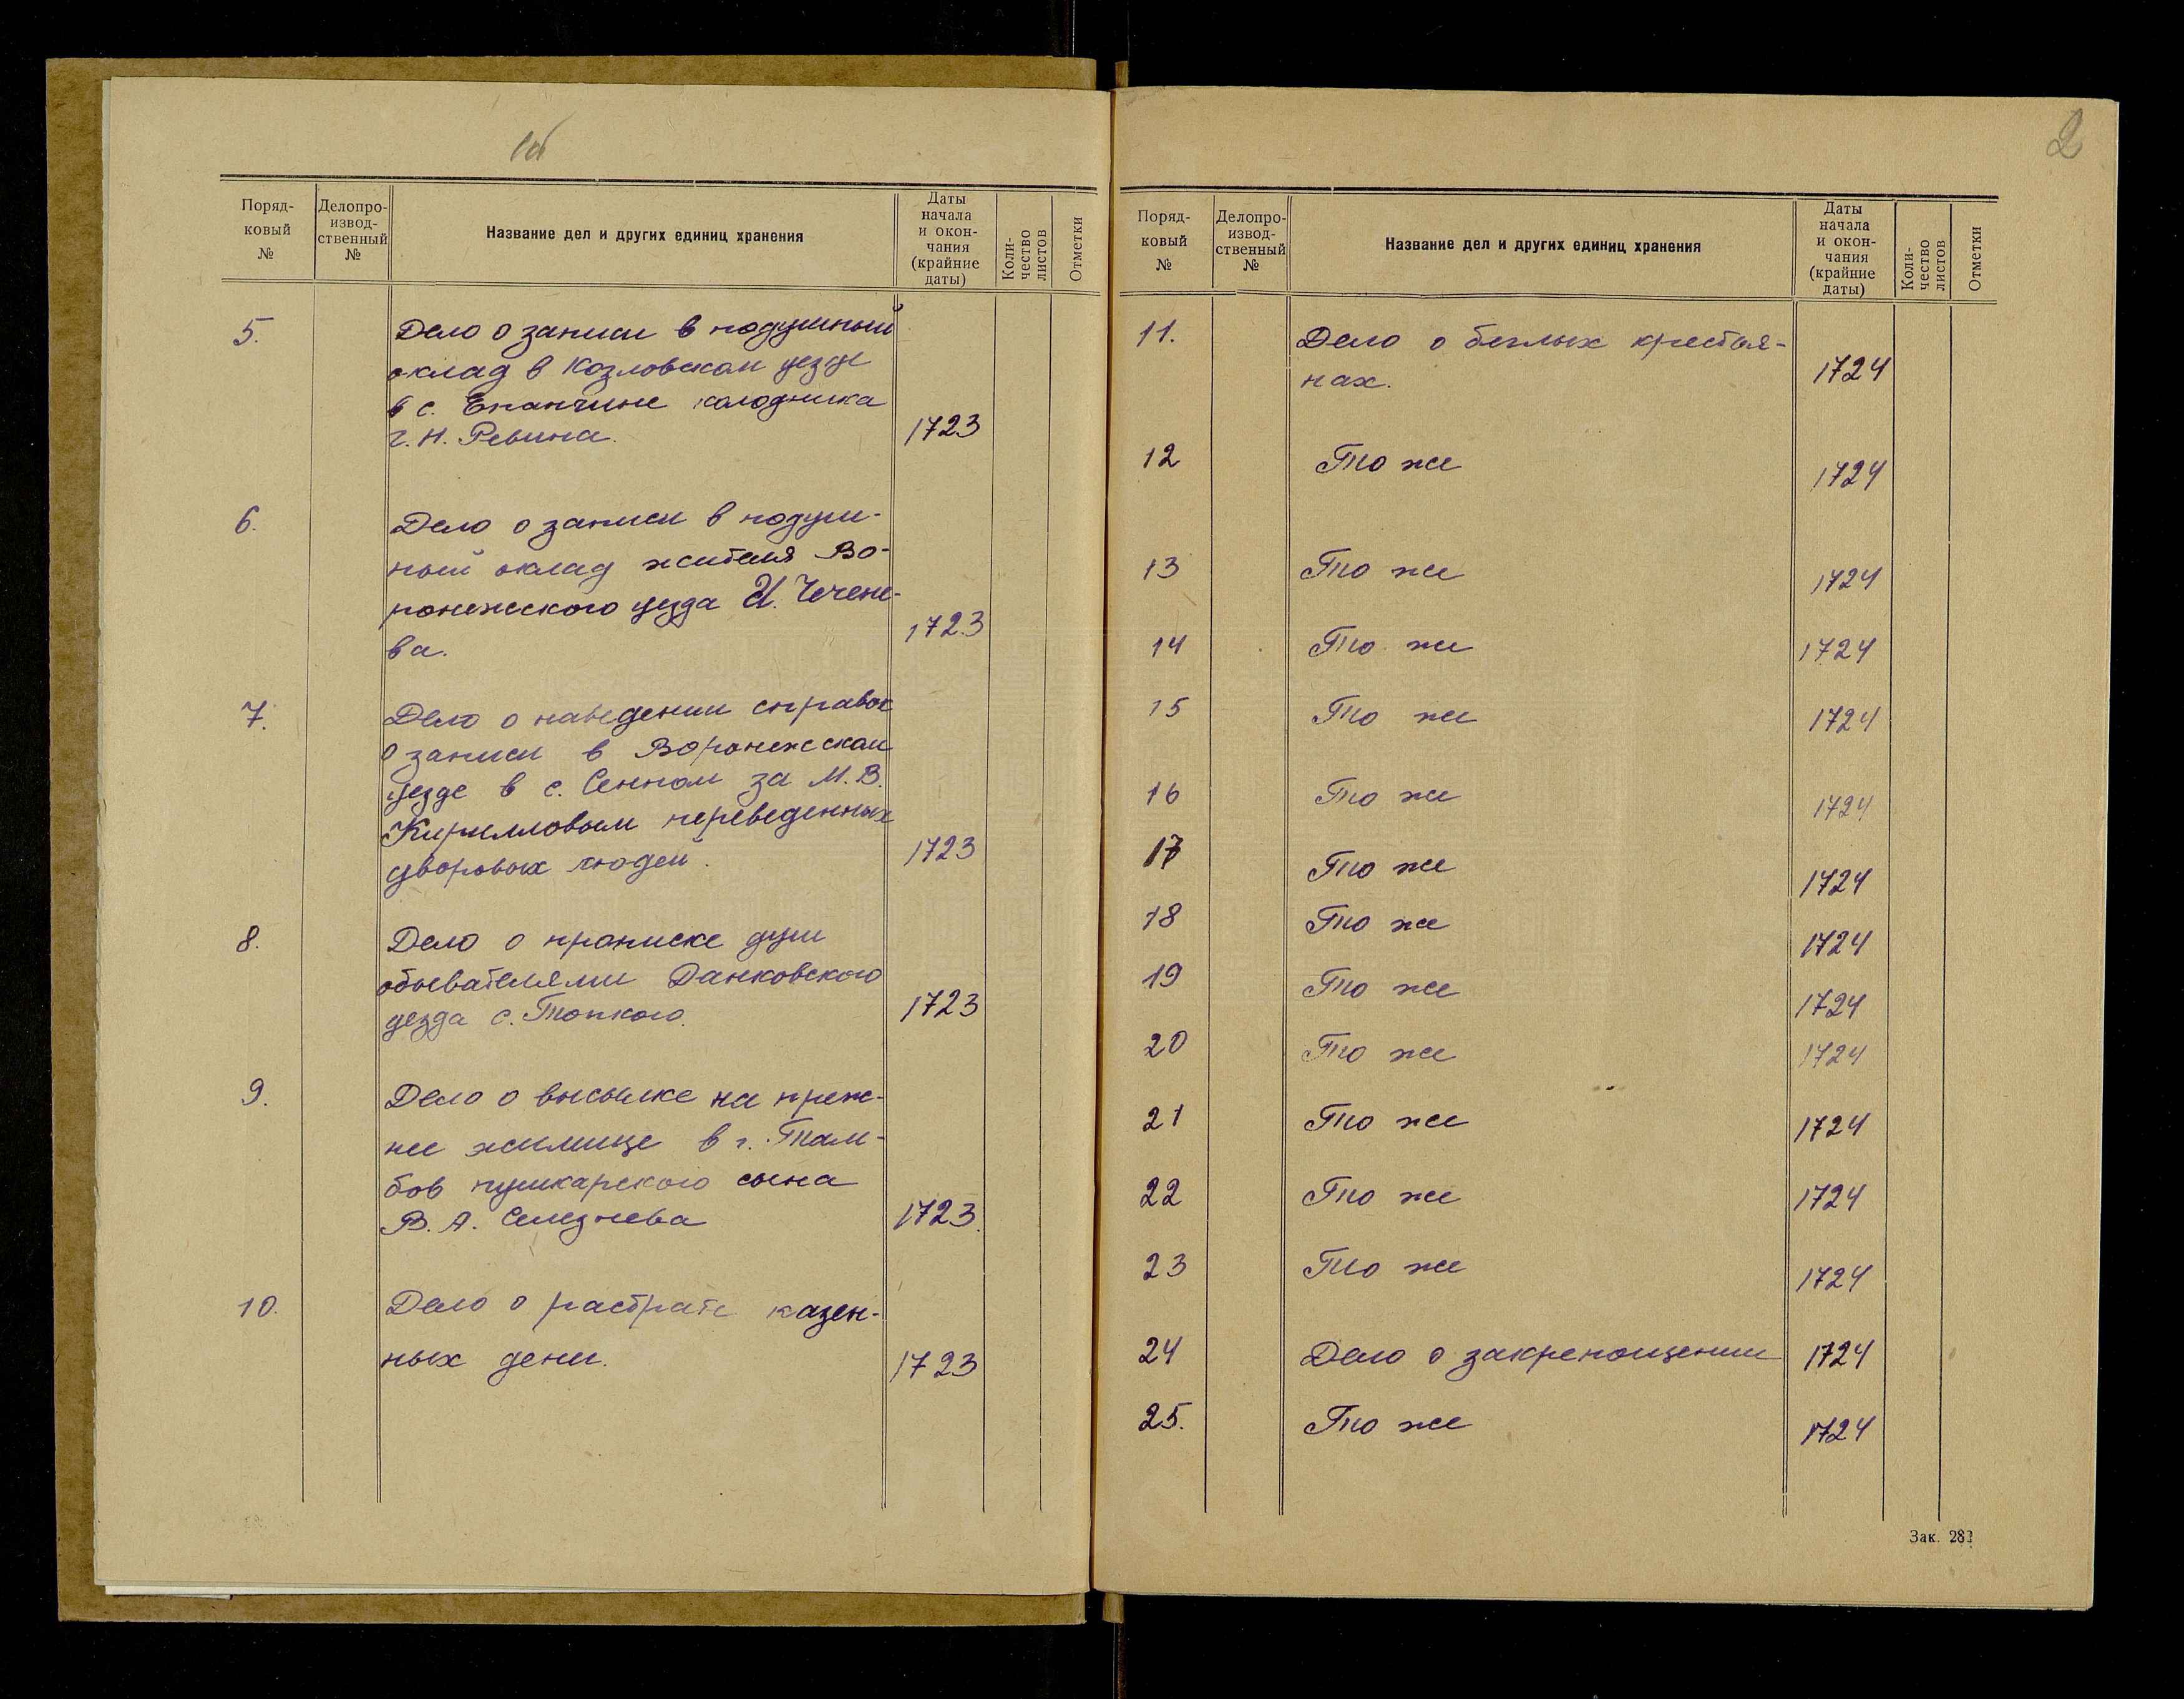 1об
Поряд-
ковый
№
Делопро-
извод-
ственный
№
Название дел и других единиц хранения
Даты
начала
и окон-
чания
(крайние
даты)
Коли-
чество
листов
Отметки
5.
Дело о записи в подушный
оклад в Козловском уезде
в с. Епанчине колодника
г. Н. Ревина.
1723
6.
Дело о записи в подуш-
ный оклад жителя Во-
ронежского уезда И. Чечене-
ва.
1723
7.
Дело о наведении справок
о записи в Воронежском
уезде в с. Сенном за М. В.
Кирилловым переведенных
дворовых людей.
1723
8.
Дело о прописке душ
обывателями Данковского
уезда с. Топкого.
1723
9.
Дело о высылке на преж-
нее жилище в г. Там-
бов пушкарского сына
В. А. Селезнева
1723.
10.
Дело о растрате казен-
ных денег.
1723
2
Поряд-
ковый
№
Делопро-
извод-
ственный
№
Название дел и других единиц хранения
Даты
начала
и окон-
чания
(крайние
даты)
Коли-
чество
листов
Отметки
11.
Дело о беглых крестья-
нах.
1724
12
То же
1724
13
То же
1724
14
То же
1724
15
То же
1724
16
То же
1724
17
То же
1724
18
То же
1724
19
То же
1724
20
То же
1724
21
То же
1724
22
То же
1724
23
То же
1724
24
Дело о закрепощении
1724
25.
То же
1724
Зак.